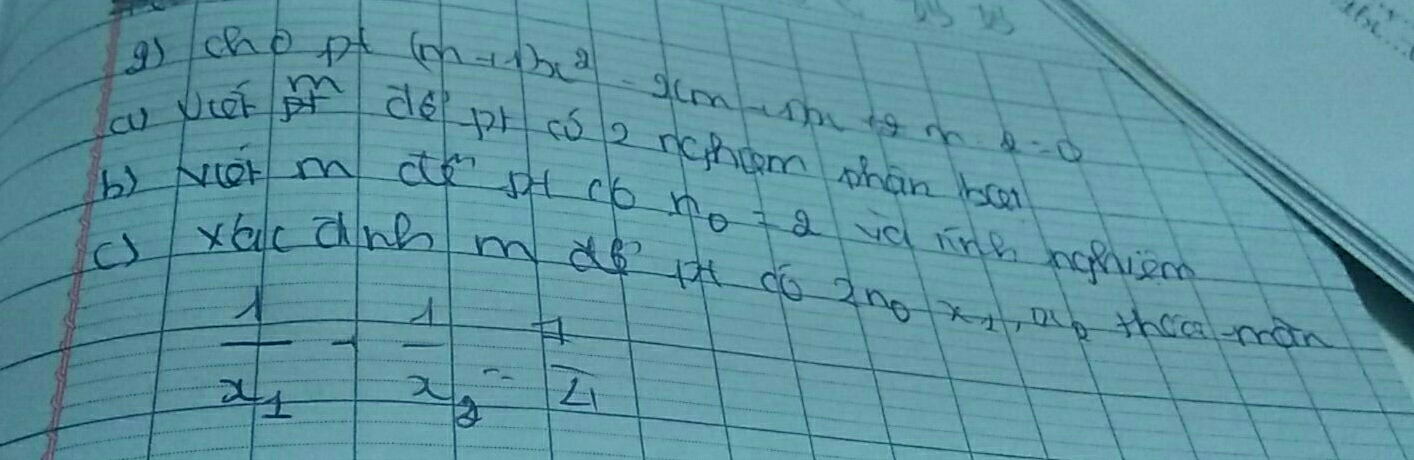 9) cho pt (m+1)x² - 2(m-1)x + m - 2 = 0
a) viết m để pt có 2 nghiệm phân biệt
b) viết m để pt có n₀ = 2 và tính nghiệm
c) xác định m để pt có 2n₀ x₁, x₂ thỏa mãn
1/x₁ + 1/x₂ = 7/4